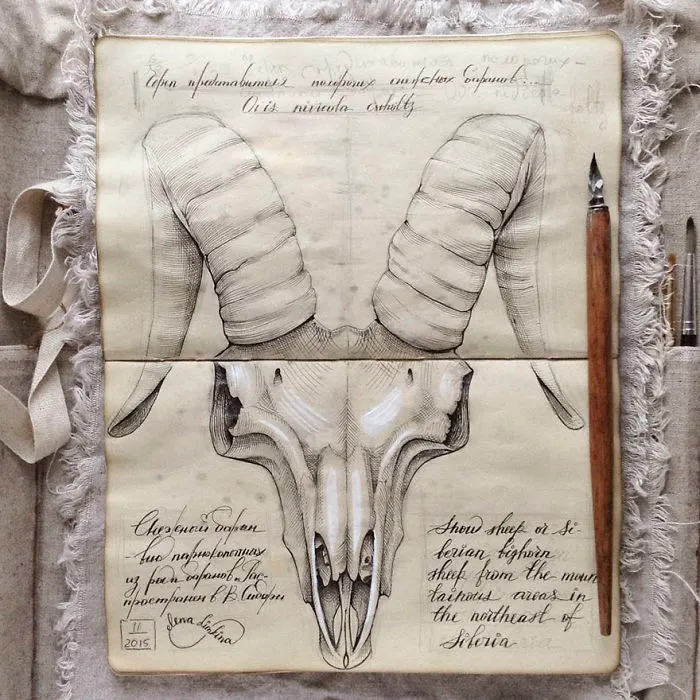 Череп представителя полорогих снежных баранов...
Ovis nivicola
Снежный баран
вид парнокопытных
из рода баранов. Рас-
пространен в В. Сибири
Lena Limkina
III
2015
Snow sheep or Si-
berian bighorn
sheep from the moun
tainous areas in
the northeast of
Siberia